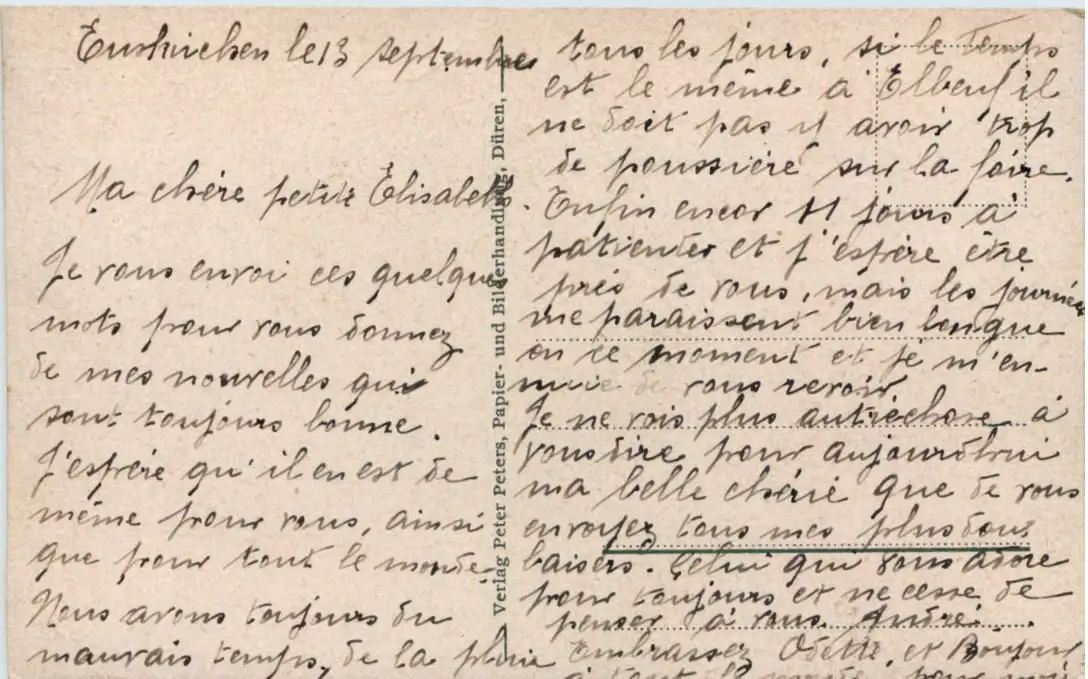 Euskirchen le 13 septembre
Ma chère petite Élisabeth.
Je vous envoi ces quelques
mots pour vous donnez
de mes nouvelles qui
sont toujours bonne.
J'espère qu'il en est de
même pour vous, ainsi
que pour tout le monde.
Nous avons toujours du
mauvais temps, de la pluie
Verlag Peter Peters, Papier- und Bilderhandlung, Düren,
tous les jours, si le temps
est le même à Elbeuf il
ne doit pas y avoir trop
de poussière sur la foire.
Enfin encor 11 jours à
patienter et j'espère être
près de vous, mais les journées
me paraissent bien longue
en ce moment et je m'en-
nuie de vous revoir
Je ne vois plus autrechose à
vous dire pour aujourdhui
ma belle chérie que de vous
envoyez tous mes plus doux
baisers. Celui qui vous adore
pour toujours et ne cesse de
penser à vous. André.
Embrassez Odette, et Bonjour
à tout le monde pour moi